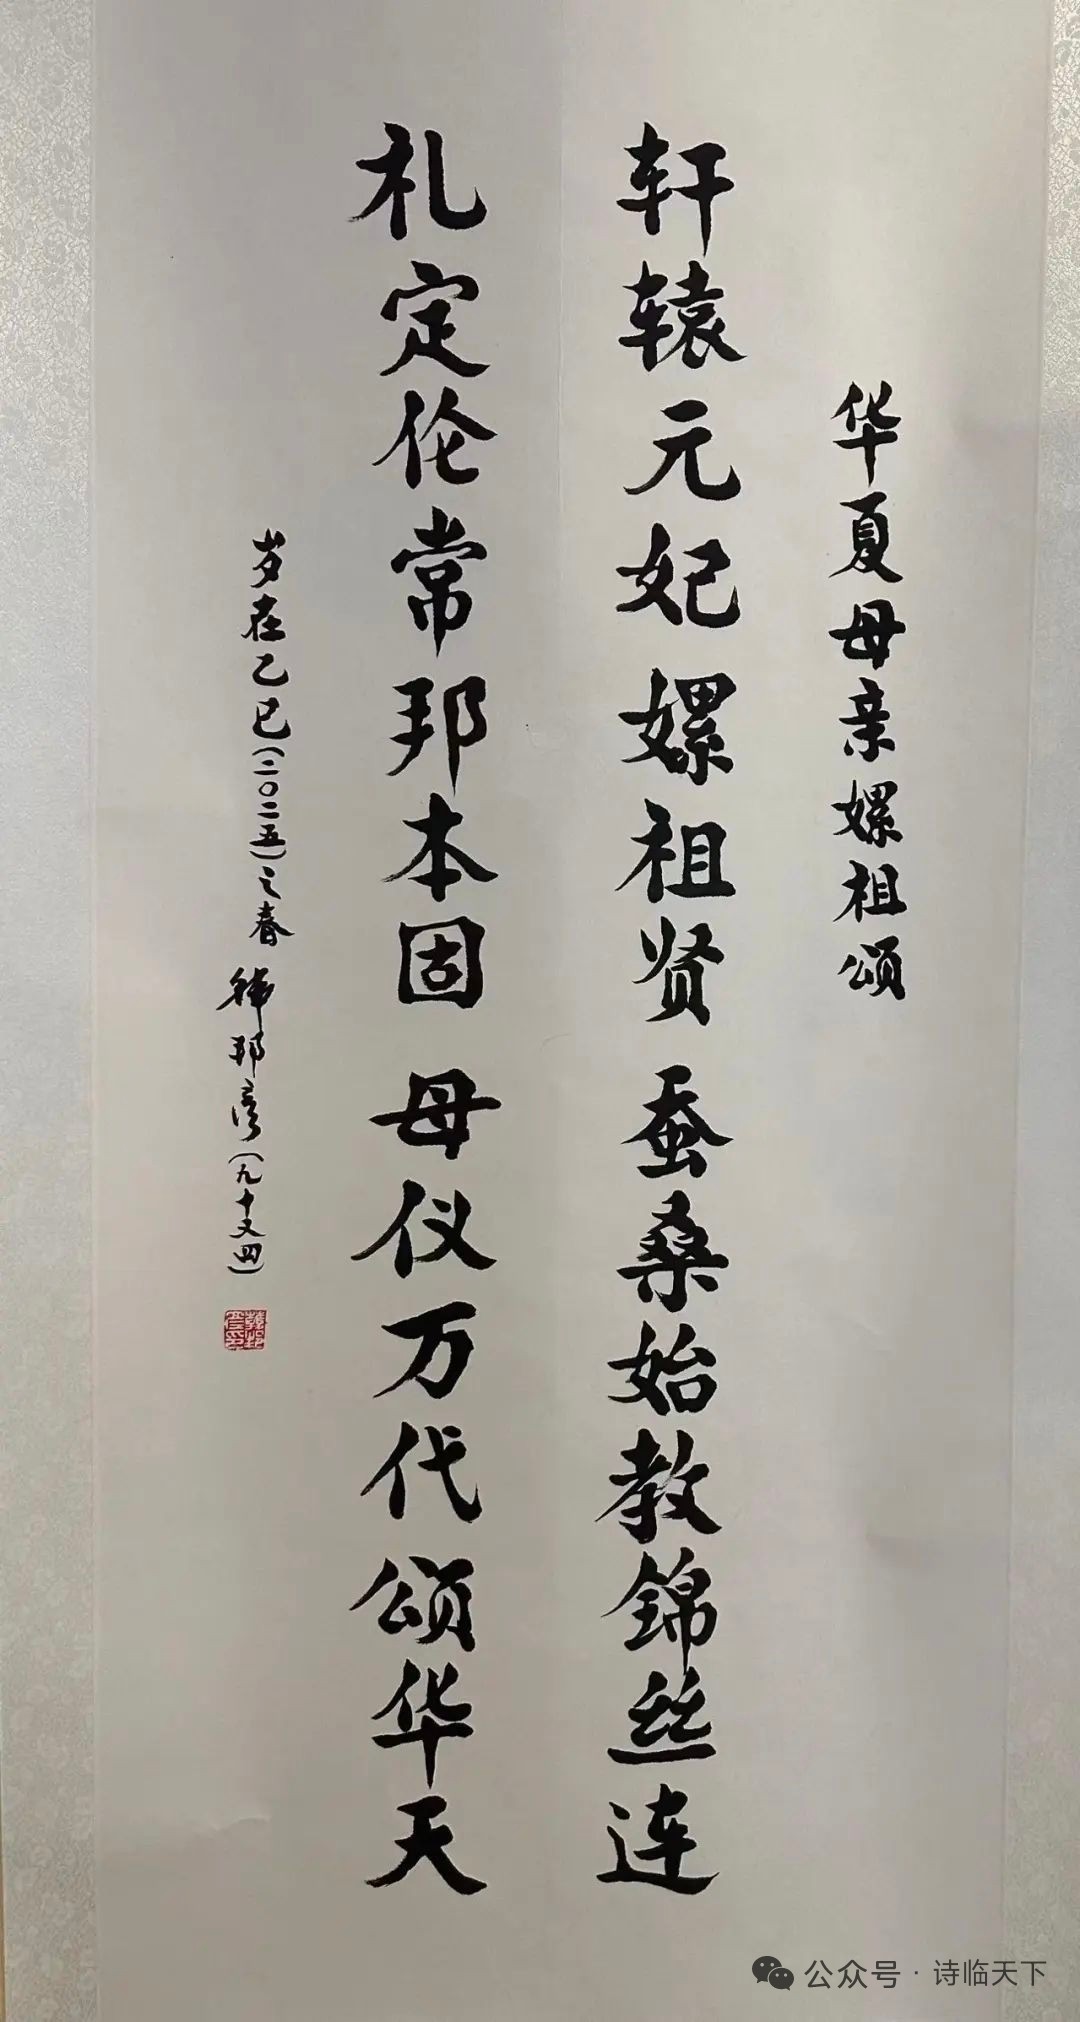 华夏母亲嫘祖颂
轩辕元妃嫘祖贤蚕桑始教锦丝连
礼定伦常邦本固母仪万代颂华天
岁在乙巳(二〇二五)之春 韩邦彦(九十又四)
公众号·诗临天下